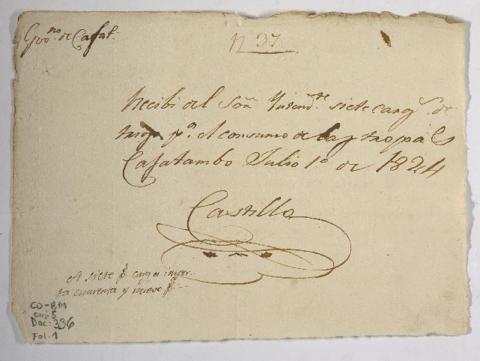 Gvo.no de Cajat.
N 37
Recibi del Señ Yntend.te siete carg.s de
trigo p.a el consumo de las tropas
Cajatambo Julio 1º de 1824
Castilla
A siete p.s carga impor-
ta cuarenta y nueve p.s
CO-BM
caj: 5
Doc: 336
Fol-1